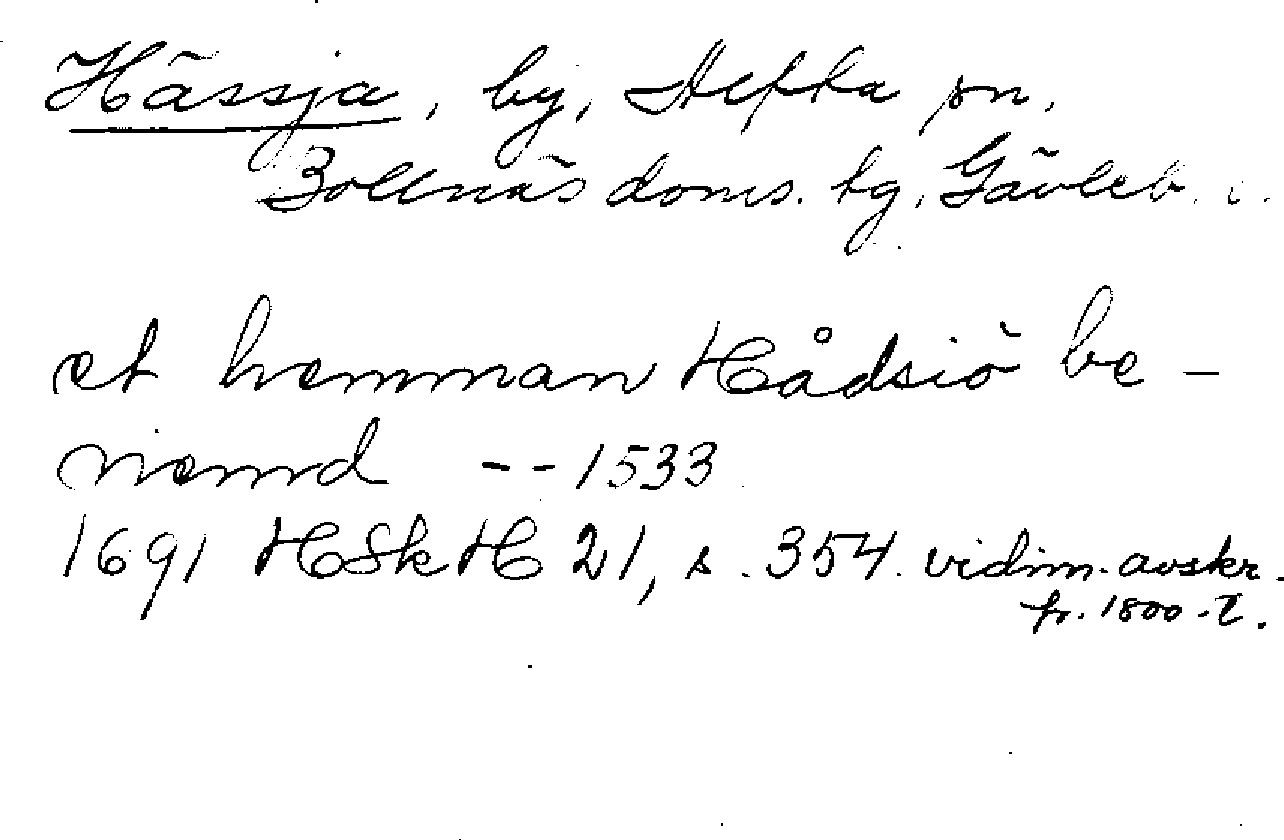 Hässja, by, Alfta sn,
Bollnäs doms. tg, Gävleb. l.
et hemman Hådsiö be-
nemd -- 1533
1691 HSkH 21, s. 354. vidim. avskr.
fr. 1800-t.